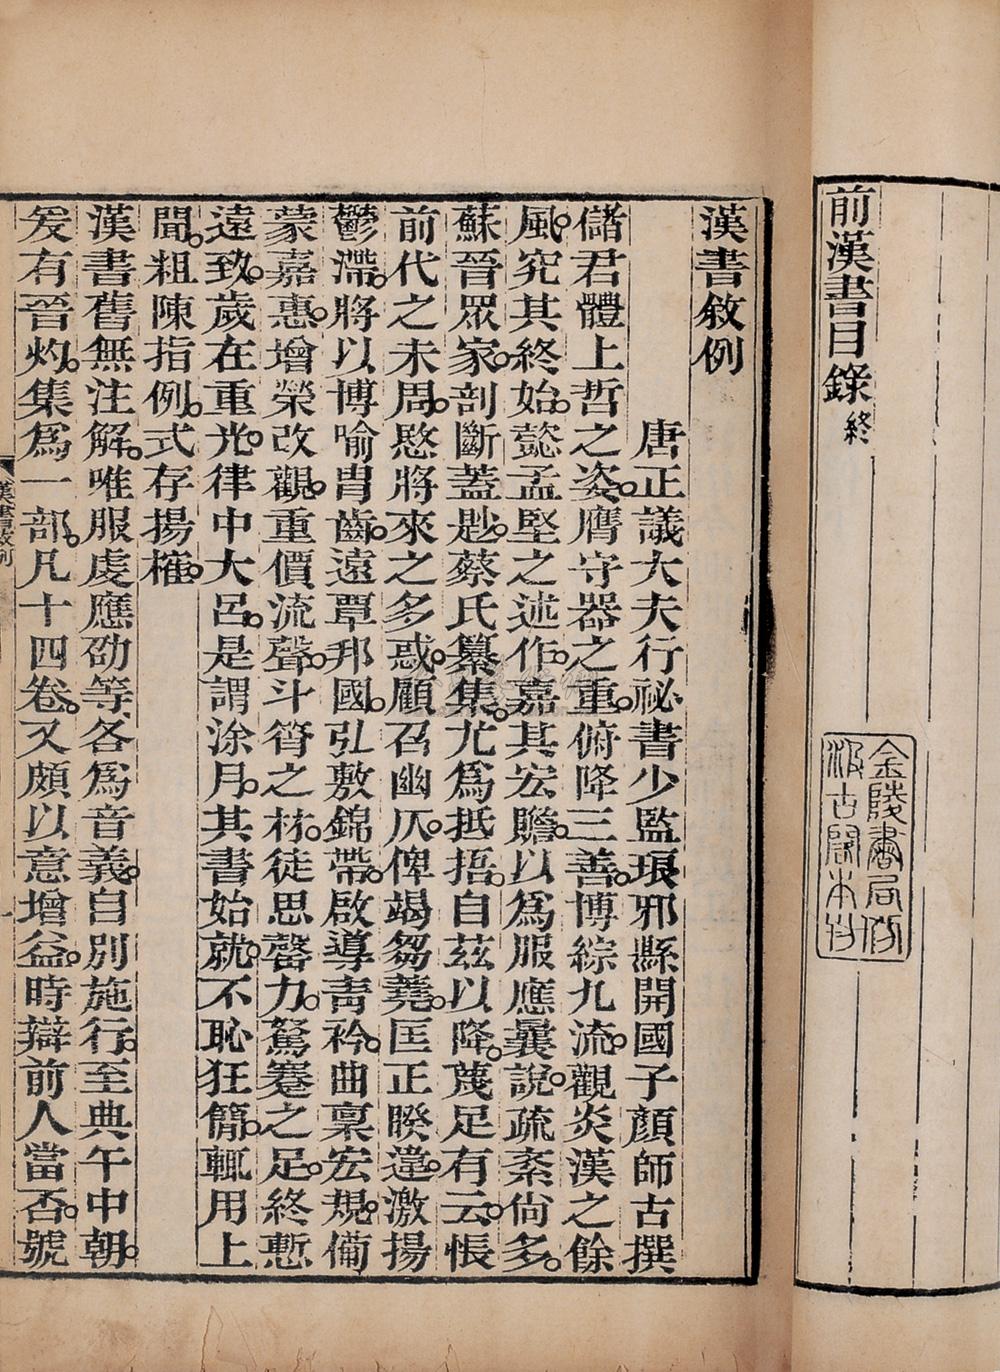 前漢書目錄終
金陵書局仿
汲古閣本刊
漢書敘例
唐正議大夫行祕書少監琅邪縣開國子顏師古撰
儲君體上哲之姿。膺守器之重。俯降三善。博綜九流。觀炎漢之餘
風。究其終始。懿孟堅之述作。嘉其宏贍。以爲服應曩說。疏紊尙多。
蘇晉眾家。剖斷蓋尟。蔡氏纂集。尤爲抵捂。自茲以降。蔑足有云。悵
前代之未周。愍將來之多惑。顧召幽仄。俾竭芻蕘。匡正睽違。激揚
鬱滯。將以博喻胄齒。遠覃邦國。弘敷錦帶。啟導靑衿。曲稟宏規。備
蒙嘉惠。增榮改觀。重價流聲。斗筲之材。徒思罄力。駑蹇之足。終慙
遠致。歲在重光。律中大呂。是謂涂月。其書始就。不恥狂簡。輒用上
聞。粗陳指例。式存揚榷。
漢書舊無注解。唯服虔應劭等各爲音義。自別施行。至典午中朝。
爰有晉灼。集爲一部。凡十四卷。又頗以意增益。時辯前人當否。號
漢書敘例